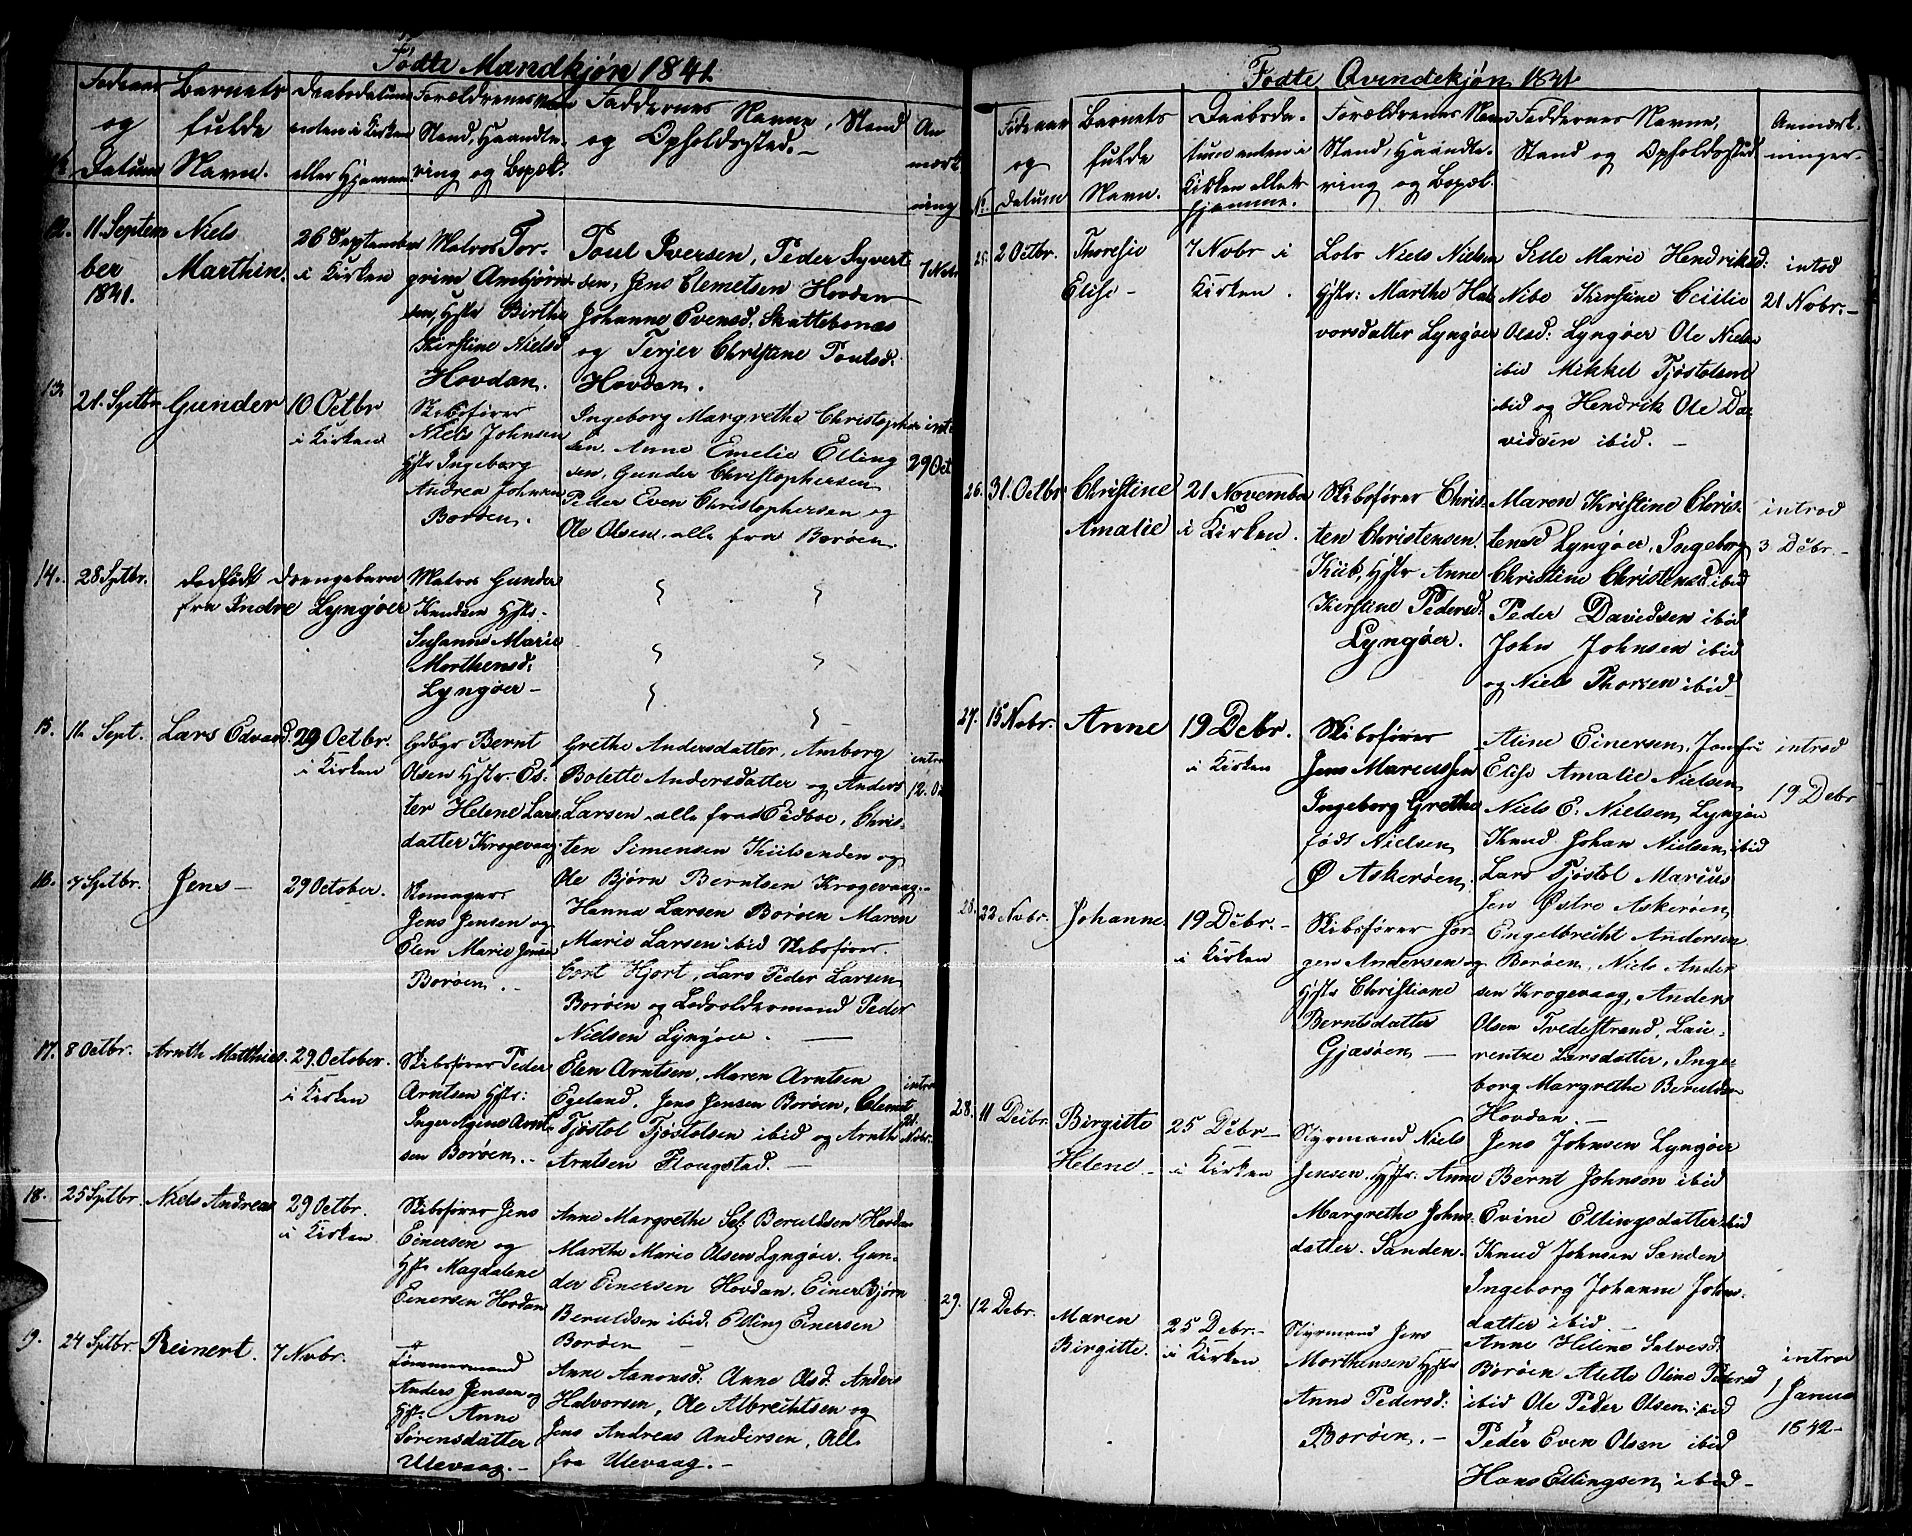 Fødte Mandkjøn 1841.
No
Fødeaar
og
Datum
Barnets
fulde
Navn.
Daabsdatum
enten i Kirken
eller Hjemme
Forældrenes Navn
Stand, Haandte-
ring og Bopæl.
Faddernes Navne, Stand
og Opholdssted.-
An
mærk
ning
12.
11. Septem
ber
1841.
Niels
Marthin.
26 September
i Kirken
Matros Tor-
grim Ambjørn-
sen, Hstr Birthe
Kirstine Nielsd
Hovdan.
Poul Iversen, Peder Syvert
sen, Jens Clemetsen Hovdan
Johanne Evensd. Skattebonæs
og Terjer Christine Poulsd.
Hovdan.
7 Nobr
13.
21. Sptbr.
Gunder
10 Octbr
i Kirken
Skibsfører
Niels Johnsen
Hstr Ingeborg
Andrea Johnsen
Borøen.
Ingeborg Margrethe Christopher
sen. Anne Emelie Elling
sen, Gunder Christophersen
Peder Even Christophersen og
Ole Olsen, alle fra Borøen.
int
29 Oct
14.
28 Sptbr.
dødfødt Drengebarn
fra Indre Lyngøer
Matros Gunder
Knudsen Hstr.
Susanne Marie
Morthensd:
Lyngøer -
15.
11. Sept.
Lars Edvard.
29 Octbr.
i Kirken
Gdbgr Bernt
Olsen Hstr. Es-
ter Helene Lars
datter Krogevaag
Grethe Andersdatter, Amborg
Bolette Andersdatter og Anders
Larsen alle fra Eidboe, Chris-
ten Simensen Kiilsenden og
Ole Bjørn Berntsen Krogevaag.-
intro
12. Oc
16.
7 Sptbr.
Jens -
29 October.
Skomager
Jens Jensen og
Elen Marie Jensen
Borøen. -
Hanna Larsen Borøen Maren
Marie Larsen ibid Skibsfører
Cort Hjort, Lars Peder Larsen
Borøen og Lodsoldermand Peder
Nielsen Lyngøer. -
17.
8 Octbr.
Arnth Matthias.
29 October.
i Kirken
Skibsfører Peder
Arntsen Hstr:
Inger Agine Arnt-
sen Borøen. -
Elen Arntsen, Maren Arntsen
Egeland, Jens Jensen Borøen, Clemet
Tjøstol Tjøstolsen ibid og Arnth
Arntsen Flougstad. -
intro
21.
Nobr.
18.
25 Sptbr.
Niels Andreas
29 Octbr.
i Kirken
Skibsfører Jens
Einersen og
Hstr Magdalene
Einersen Hovdan
Anne Margrethe Sef. Beruldsen Hovdan
Marthe Marie Olsen Lyngøer. Gun-
der Einersen Hovdan. Einer Bjørn
Beruldsen ibid. Elling Einersen
Borøen -
19.
24 Sptbr.
Reinert.
7 Nobr.
Tømmermand
Anders Jensen og
Hstr. Anne
Sørensdatter
Ulevaag. -
Anne Aanonsd: Anne Olsd: Anders
Halvorsen, Ole Albrechtsen og
Jens Andreas Andersen, All
fra Ulevaag. -
Fødte Qvindekjøn 1841
No.
Fødeaar
og
Datum
Barnets
fulde
Navn.
Daabsda-
tum enten i
Kirken eller
hjemme.
Forældrenes Navn
Stand, Haandte-
ring og Bopæl.
Faddernes Navne,
Stand og Opholdssted.
Anmærk-
ninger.
25.
2 Octbr.
Thoresie
Elise -
7 Nobr i
Kirken.
Lods Niels Nielsen
Hstr: Marthe Hal
vorsdatter Lyngøer
Sille Marie Hendriksd:
Nibe Kirstine Cecilie
Olsd: Lyngøer Ole Nielsen
ibid Mikkel Tjøstolsen
ibid og Hendrik Ole Da-
vidsen ibid. -
introd
21 Nobr. -
26.
31. Octbr
Christine
Amalie
21 November
i Kirken.
Skibsfører Chris-
ten Christensen
Kiib, Hstr Anne
Kirstine Pedersd.
Lyngøer.
Maren Kirstine Chris-
tensd Lyngøer, Ingeborg
Christine Christensd ibid
Peder Davidsen ibid
John Johnsen ibid
og Niels Thorsen ibid
introd
3 Debr. -
27.
15 Nobr.
Anne
19 Debr.
i Kirken
Skibsfører
Jens Marcussen
Ingeborg Grethe
født Nielsen
Ø Askerøen.
Aline Einersen, Jomfru
Elise Amalie Nielsen
Niels E. Nielsen Lyngøer
Knud Johan Nielsen ibid
Lars Tjøstol Marius
Jen Østre Askerøen
introd
19 Debr
28.
22 Nobr.
Johanne
19 Debr. -
i Kirken
Skibsfører Jør-
gen Andersen og
Hstr Christiane
Berntsdatter
Gjæsøen -
Engelbrecht Andersen
Borøen, Niels Ander
sen Krogevaag, Anders
Olsen Tvedestrand, Lau-
rentze Larsdatter, Inge-
borg Margrethe Beruldsen
Hovdan. -
28.
11 Debr.
Birgitte
Helene -
25 Debr -
i Kirken
Styrmand Niels
Jensen, Hstr: Anne
Margrethe Johns-
datter. Sanden.
Jens Johnsen Lyngøer
Bernt Johnsen ibid
Evine Ellingsdatter ibid
Knud Johnsen Sanden
Ingeborg Johanne Johns-
datter ibid -
29.
12 Debr.
Maren
Birgitte.
25 Debr. -
i Kirken
Styrmand Jens
Morthensen Hstr
Anne Pedersd:
Borøen. -
Anne Helene Salvesd:
Borøen Alette Oline Pedersd
ibid Ole Peder Olsen ibid
Peder Even Olsen ibid
Hans Ellingsen ibid -
introd
1 Janua
1842 -